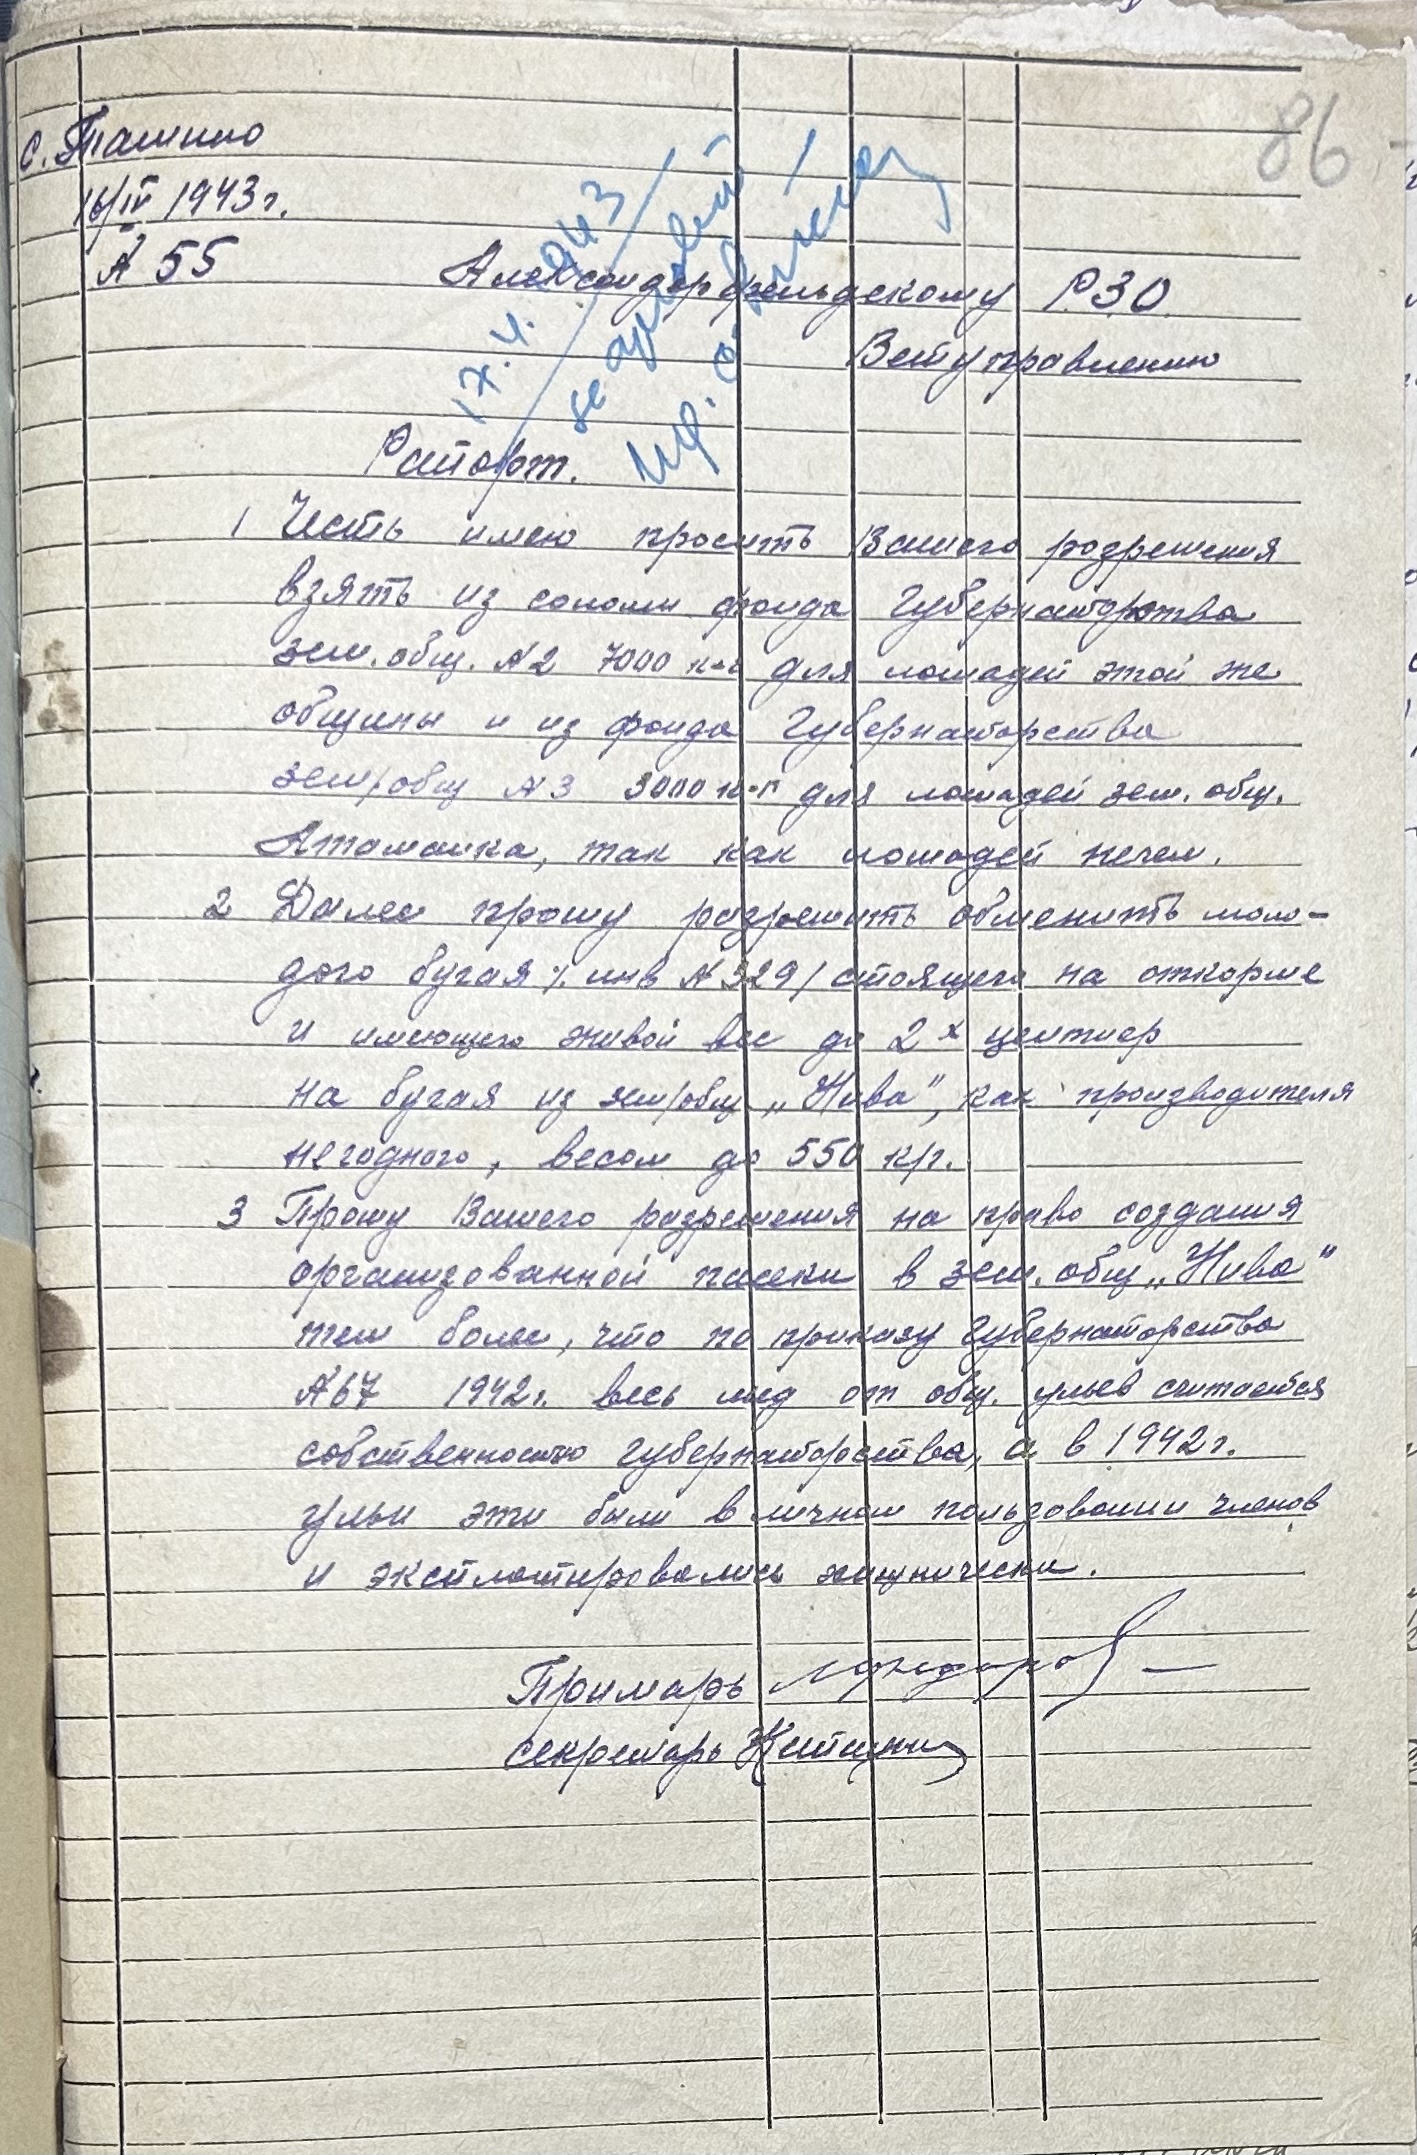 86
с. Ташино
16/IV 1943 г.
№ 55
17.4.943
se aprobă
Александрфельдскому РЗО
Ветуправлению
Рапорт.
1 Честь имею просить Вашего разрешения
взять из соломы фонда Губернаторства
зем. общ. №2 7000 к-г для лошадей этой же
общины и из фонда Губернаторства
зем/общ №3 3000 к-г для лошадей зем. общ.
Атаманка, так как лошадей нечем.
2 Далее прошу разрешить обменить моло-
дого бугая /. инв №329/ стоящего на откорме
и имеющего живой вес до 2х центнер
на бугая из зем/общ „Нива", как производителя
негодного, весом до 550 к/г.
3 Прошу Вашего разрешения на право создания
организованной пасеки в зем. общ „Нива"
тем более, что по приказу Губернаторства
№67 1942 г. весь мед от общ. ульев считается
собственностью Губернаторства, а в 1942 г.
ульи эти были в личном пользовании членов
и эксплотировались хищнически.
Примарь
Секретарь